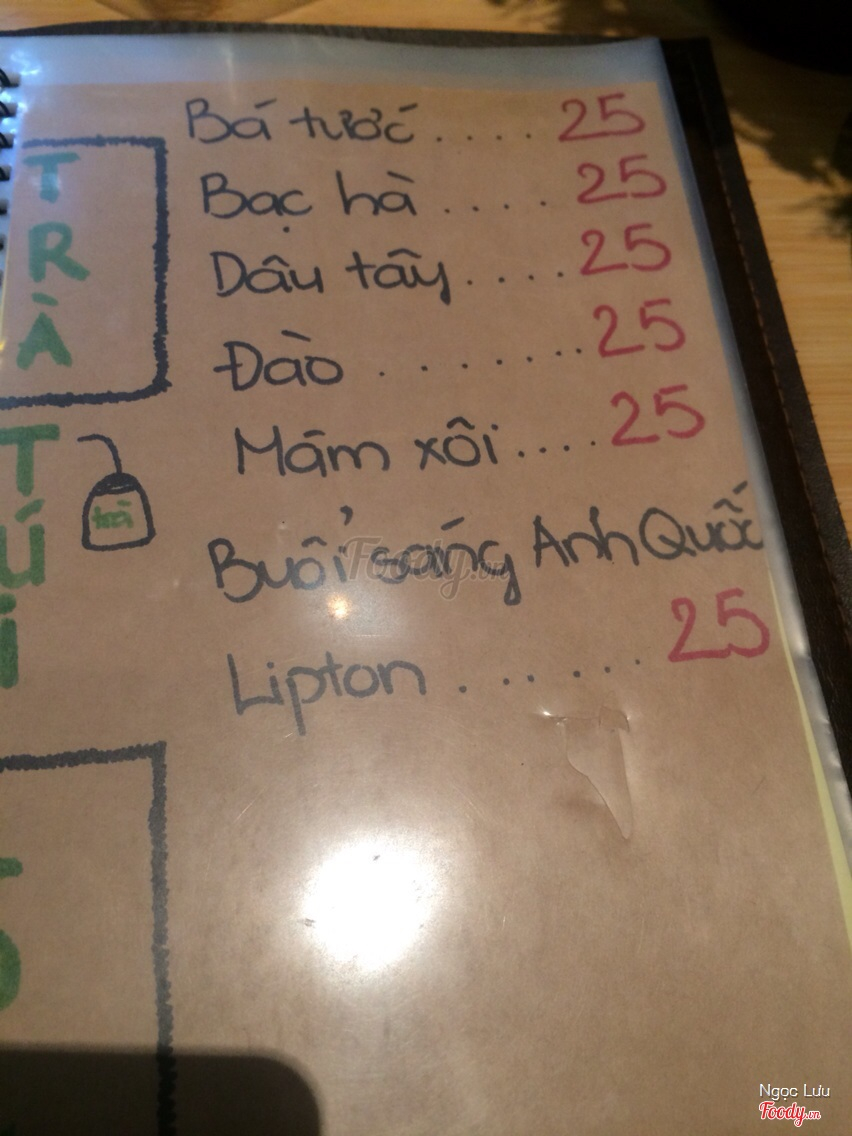 TRÀ
TÚI
trà
Bá tước.... 25
Bạc hà..... 25
Dâu tây..... 25
Đào........ 25
Mâm xôi.... 25
Buổi sáng Anh Quốc
25
Lipton.......
Foody.vn
Ngọc Lưu
Foody.vn